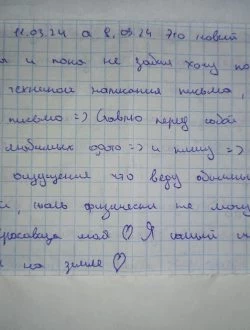 11.03.24 а 8.03.24 это новый
я и пока не забыл хочу по
техникой написания письма,
письмо =) Ставлю перед собой
любимых фото =) и пишу =)
ощущения что веду обычный
жаль физически не могу
красавица моя ♡ Я самый
на земле ♡